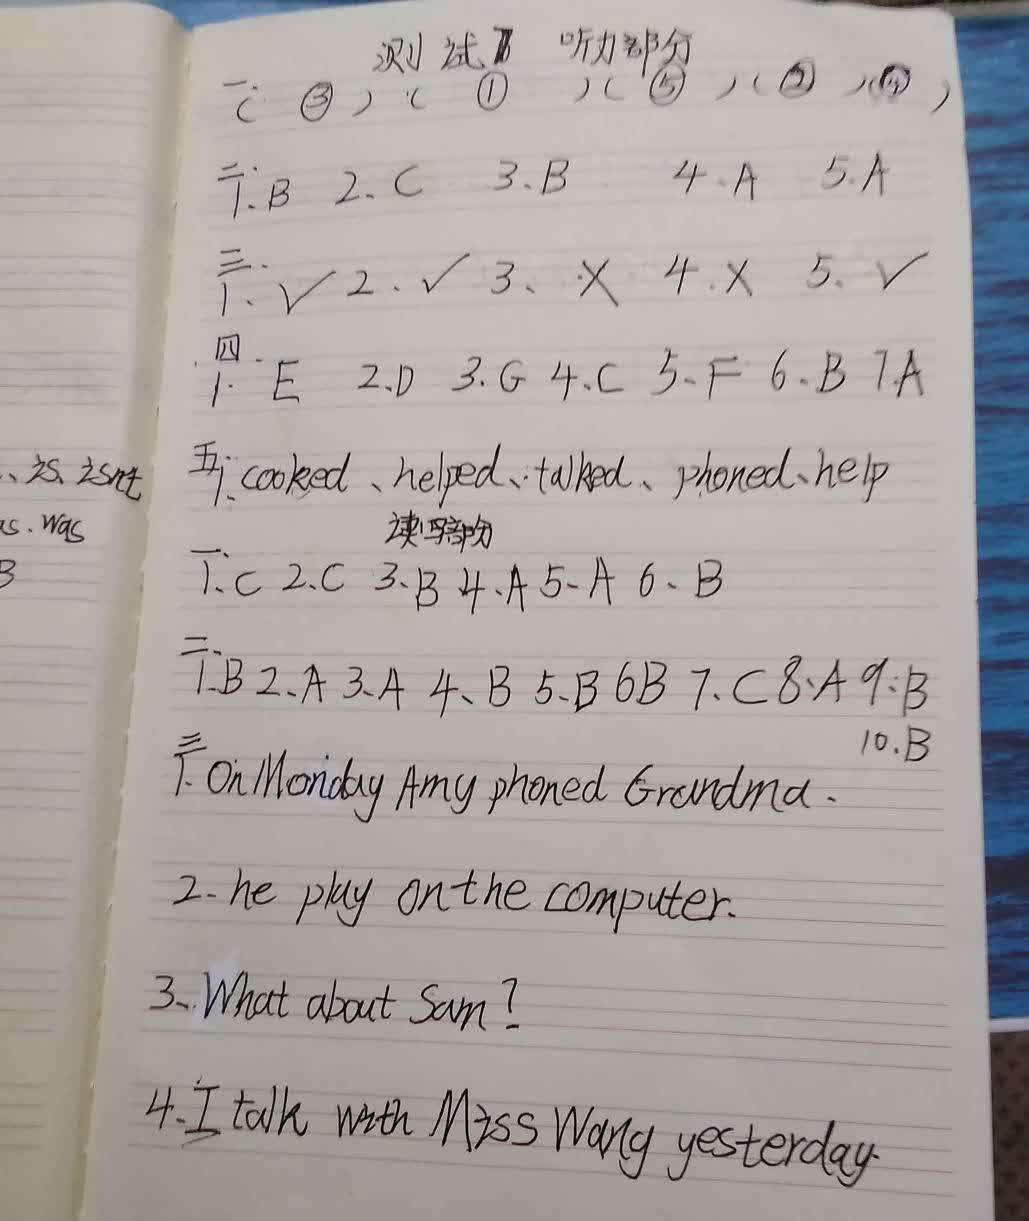 测试 听力部分
一.( ③ ) ( ① ) ( ⑤ ) ( ② ) ( ④ )
二.
1.B 2.C 3.B 4.A 5.A
三.
1.√ 2.√ 3.X 4.X 5.√
四.
1.E 2.D 3.G 4.C 5.F 6.B 7.A
五.1.cooked、helped、talked、phoned、help
读写部分
一.
1.C 2.C 3.B 4.A 5.A 6.B
二.
1.B 2.A 3.A 4.B 5.B 6B 7.C 8.A 9.B
10.B
三.
1. On Monday Amy phoned Grandma.
2. he play on the computer.
3. What about Sam?
4. I talk with Miss Wang yesterday.
、is、isnt
as. was
B